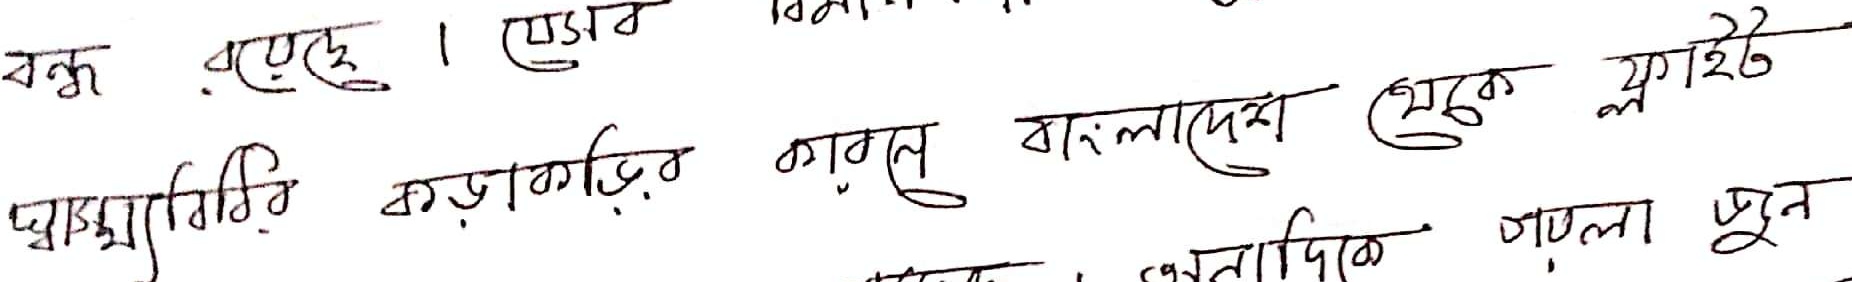 বন্ধ রয়েছে । যেসব বিমান
স্বাস্থ্যবিধির কড়াকড়ির কারণে বাংলাদেশ থেকে ফ্লাইট
অন্যদিকে পয়লা জুন